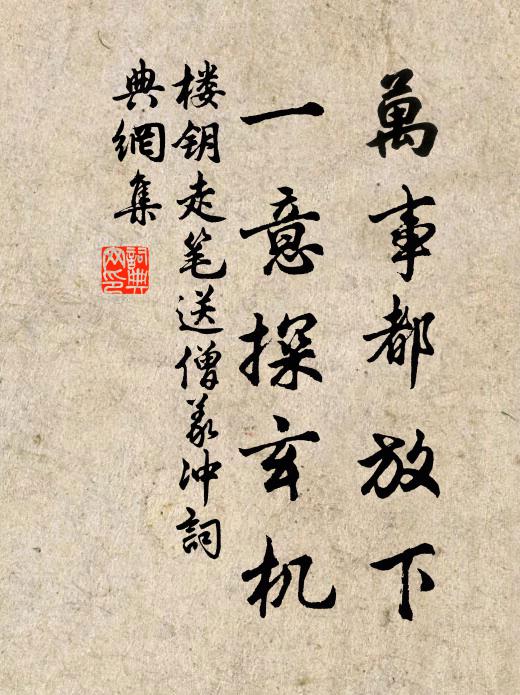 萬事都放下
一意探玄机
楼钥走笔送僧羲冲詞
典網集
詞典
网印